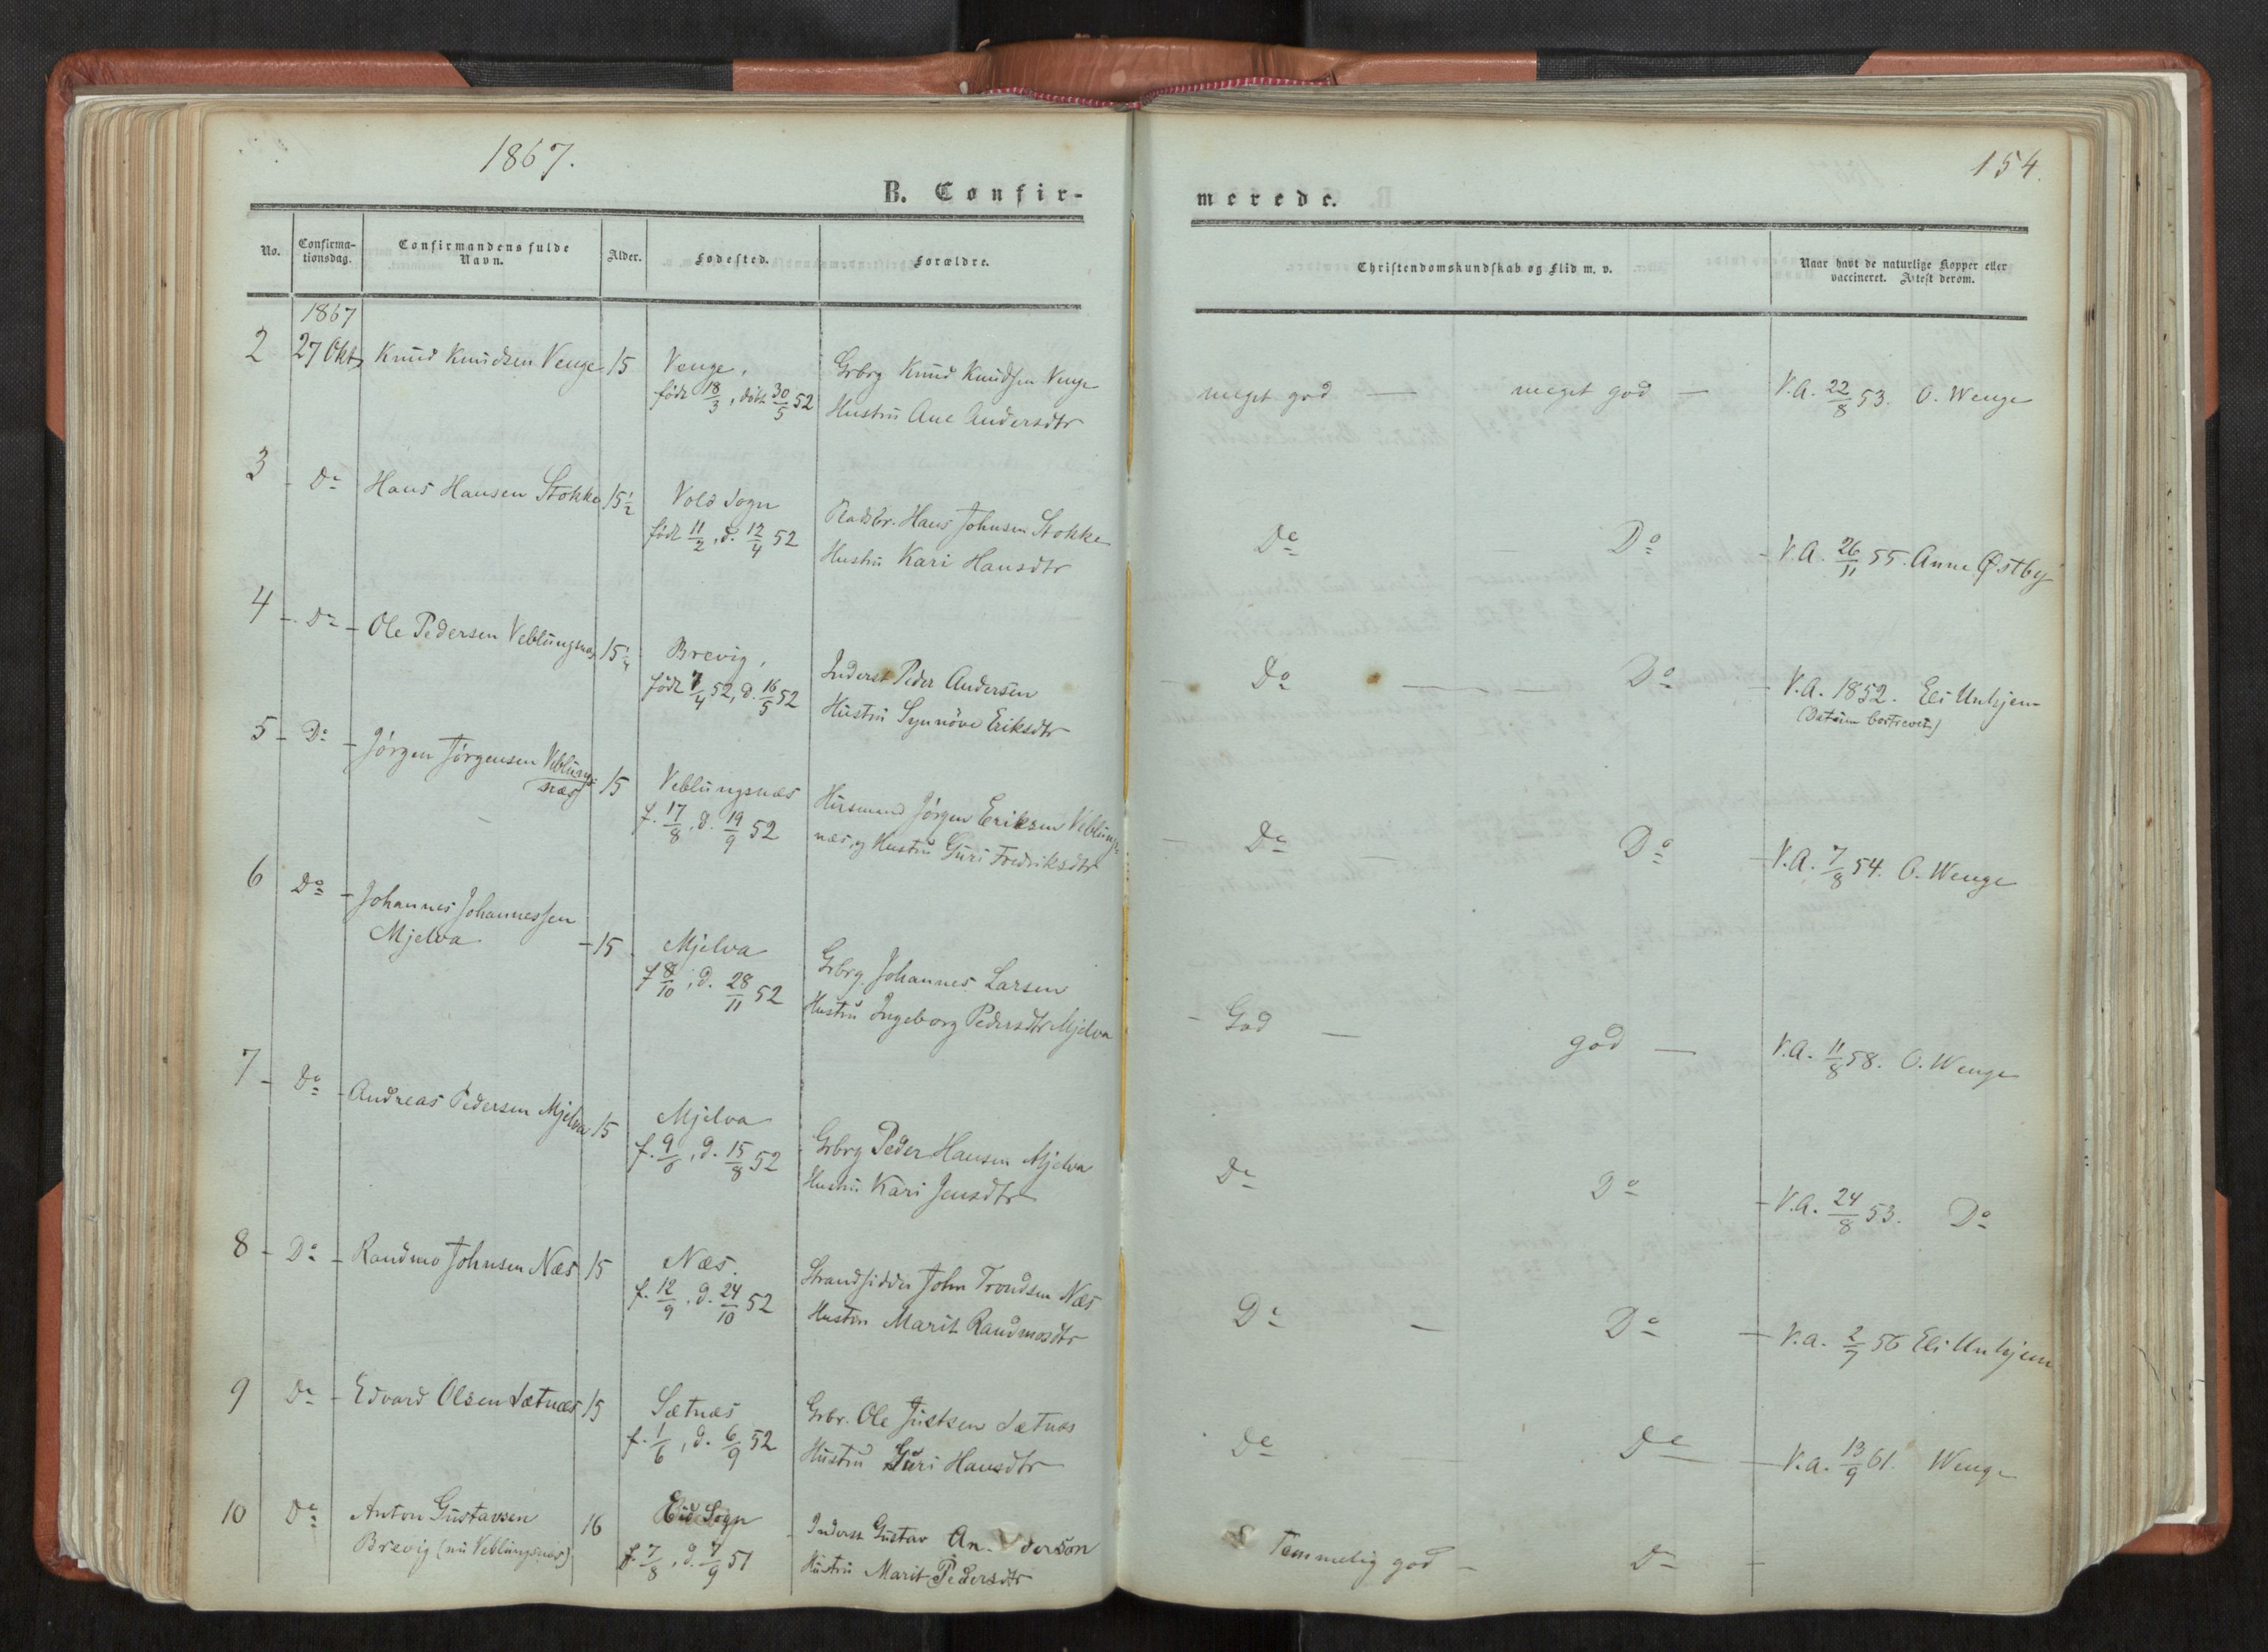 1867.
154.
B. Confir-
merede.
No.
Confirma-
tionsdag.
Confirmandens fulde
Navn.
Alder.
Fødested.
Forældre.
Christendomskundskab og Flid m. v.
Naar havt de naturlige Kopper eller
vaccineret. Attest derom.
1867
2 27 Okt. Knud Knudsen Venge 15 Venge, Grbrg Knud Knudsen Venge
født 18/3, døbt 30/5 52 Hustru Ane Andersdtr
meget god — meget god — V.A. 22/8 53. O. Wenge
3 - Do Hans Hansen Stokke 15½ Vold Sogn Pladsbr. Hans Johnsen Stokke
født 11/2, d. 12/4 52 Hustru Kari Hansdtr
Do — Do - V.A. 26/11 55. Anne Østby
4 - Do - Ole Pedersen Veblungsnæs 15¼ Brevig, Inderst Peder Andersen
født 7/4 52, d. 16/5 52 Hustru Synnöve Eriksdtr
- Do — — Do - V.A. 1852. Eli Unhjem
(Datum bortrevet)
5 - Do - Jørgen Jørgensen Veblungs-
næs 15 Veblungsnæs Husmand Jørgen Eriksen Veblungs-
f. 17/8, d. 19/9 52 næs, og Hustru Guri Fredriksdtr
- Do — Do - V.A. 7/8 54. O. Wenge
6 Do - Johannes Johannessen
Mjelva - 15 Mjelva Grbrg. Johannes Larsen
f 8/10, d. 28/11 52 Hustru Ingeborg Pedersdtr Mjelva
- God — god — V.A. 11/8 58. O. Wenge
7 - Do - Andreas Pedersen Mjelva 15 Mjelva Grbrg Peder Hansen Mjelva
f. 9/6, d. 15/8 52 Hustru Kari Jensdtr
Do Do - V.A. 24/8 53. Do
8 - Do - Randmo Johnsen Næs 15 Næs. Strandsidder John Trondsen Næs
f. 12/9, d. 24/10 52 Hustru Marit Randmosdtr
Do — Do — V.A. 2/7 56 Eli Unhjem
9 Do - Edvard Olsen Sætnæs 15 Sætnæs Grbr. Ole Justsen Sætnæs
f. 1/6, d. 6/9 52 Hustru Guri Hansdtr
Do Do — V.A. 13/9 61. Wenge
10 Do Anton Gustavsen 16 Eid Sogn - Inderst Gustav Anderson
Brevig (nu Veblungsnæs) f. 7/8, d. 7/9 51 Hustru Marit Pedersdtr
Temmelig god - Do -